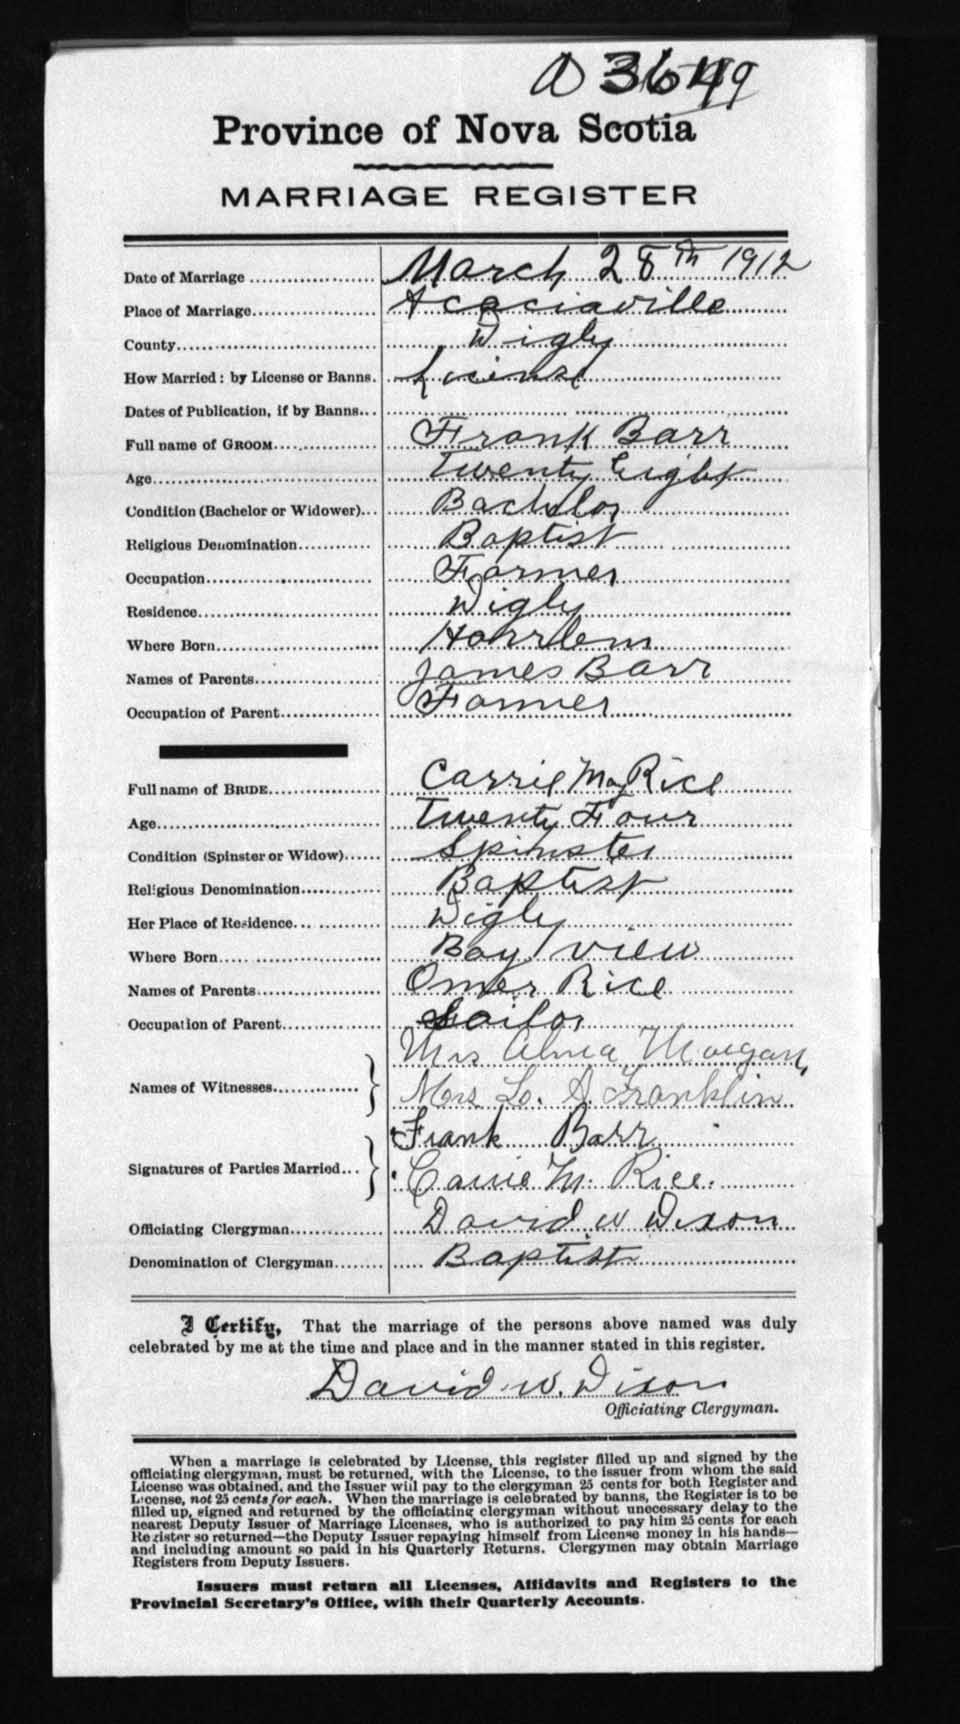 Province of Nova Scotia
MARRIAGE REGISTER
Date of Marriage March 28th 1912
Place of Marriage Acaciaville
County Digby
How Married: by License or Banns. License
Dates of Publication, if by Banns
Full name of GROOM Frank Barr
Age Twenty Eight
Condition (Bachelor or Widower) Bachelor
Religious Denomination Baptist
Occupation Farmer
Residence Digby
Where Born Hahrlem
Names of Parents James Barr
Occupation of Parent Farmer
Full name of BRIDE Carrie May Rice
Age Twenty Four
Condition (Spinster or Widow) Spinster
Religious Denomination Baptist
Her Place of Residence Digby
Where Born Bay View
Names of Parents Omer Rice
Occupation of Parent Sailor
Mrs Morgan,
Names of Witnesses
Mrs Franklin
Frank Barr
Signatures of Parties Married
Carrie M. Rice.
Officiating Clergyman David W Dixon
Denomination of Clergyman Baptist
I Certify, That the marriage of the persons above named was duly
celebrated by me at the time and place and in the manner stated in this register.
David W. Dixon
Officiating Clergyman.
When a marriage is celebrated by License, this register filled up and signed by the
officiating clergyman, must be returned, with the License, to the issuer from whom the said
License was obtained, and the Issuer will pay to the clergyman 25 cents for both Register and
License, not 25 cents for each. When the marriage is celebrated by banns, the Register is to be
filled up, signed and returned by the officiating clergyman without unnecessary delay to the
nearest Deputy Issuer of Marriage Licenses, who is authorized to pay him 25 cents for each
Register so returned—the Deputy Issuer repaying himself from License money in his hands—
and including amount so paid in his Quarterly Returns. Clergymen may obtain Marriage
Registers from Deputy Issuers.
Issuers must return all Licenses, Affidavits and Registers to the
Provincial Secretary's Office, with their Quarterly Accounts.